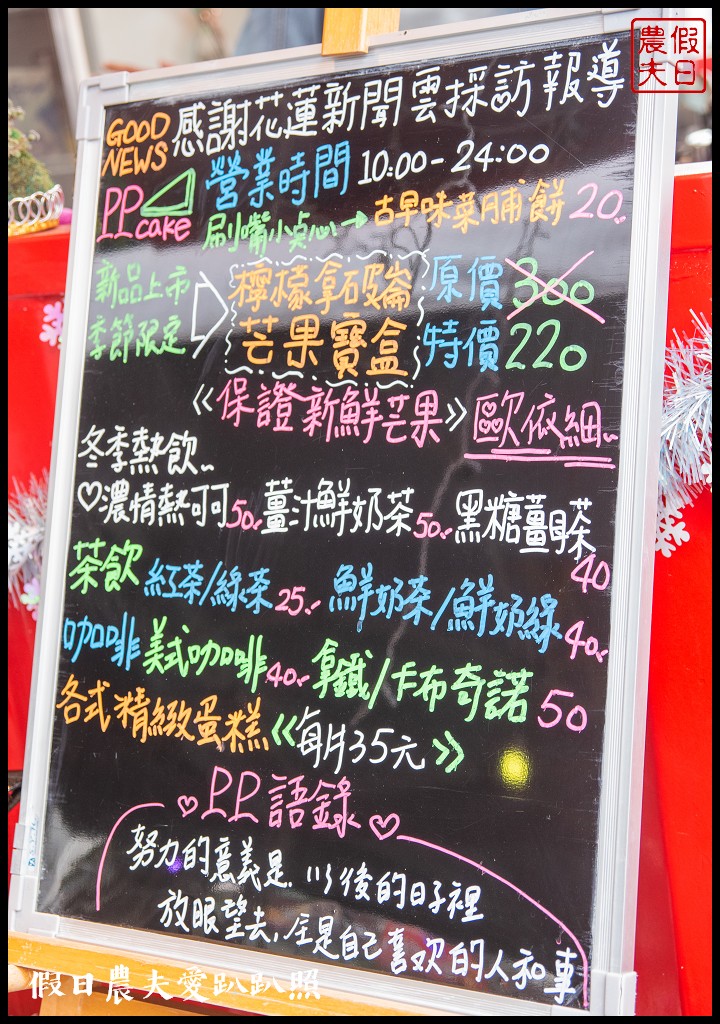 農夫假日
GOOD NEWS 感謝花蓮新聞雲採訪報導
PP cake 營業時間 10:00-24:00
刷嘴小点心→古早味菜脯餅 20
新品上市 季節限定
檸檬拿破崙 原價 300
芒果寶盒 特價 220
《保證新鮮芒果》歐依細~
冬季熱飲~
♡濃情熱可可 50 薑汁鮮奶茶 50 黑糖薑母茶 40
茶飲 紅茶/綠茶 25 鮮奶茶/鮮奶綠 40
咖啡 美式咖啡 40 拿鐵/卡布奇諾 50
各式精緻蛋糕《每片35元》
♡PP語錄♡
努力的意義是. 以後的日子裡
放眼望去,全是自己喜歡的人和事
假日農夫愛趴趴照